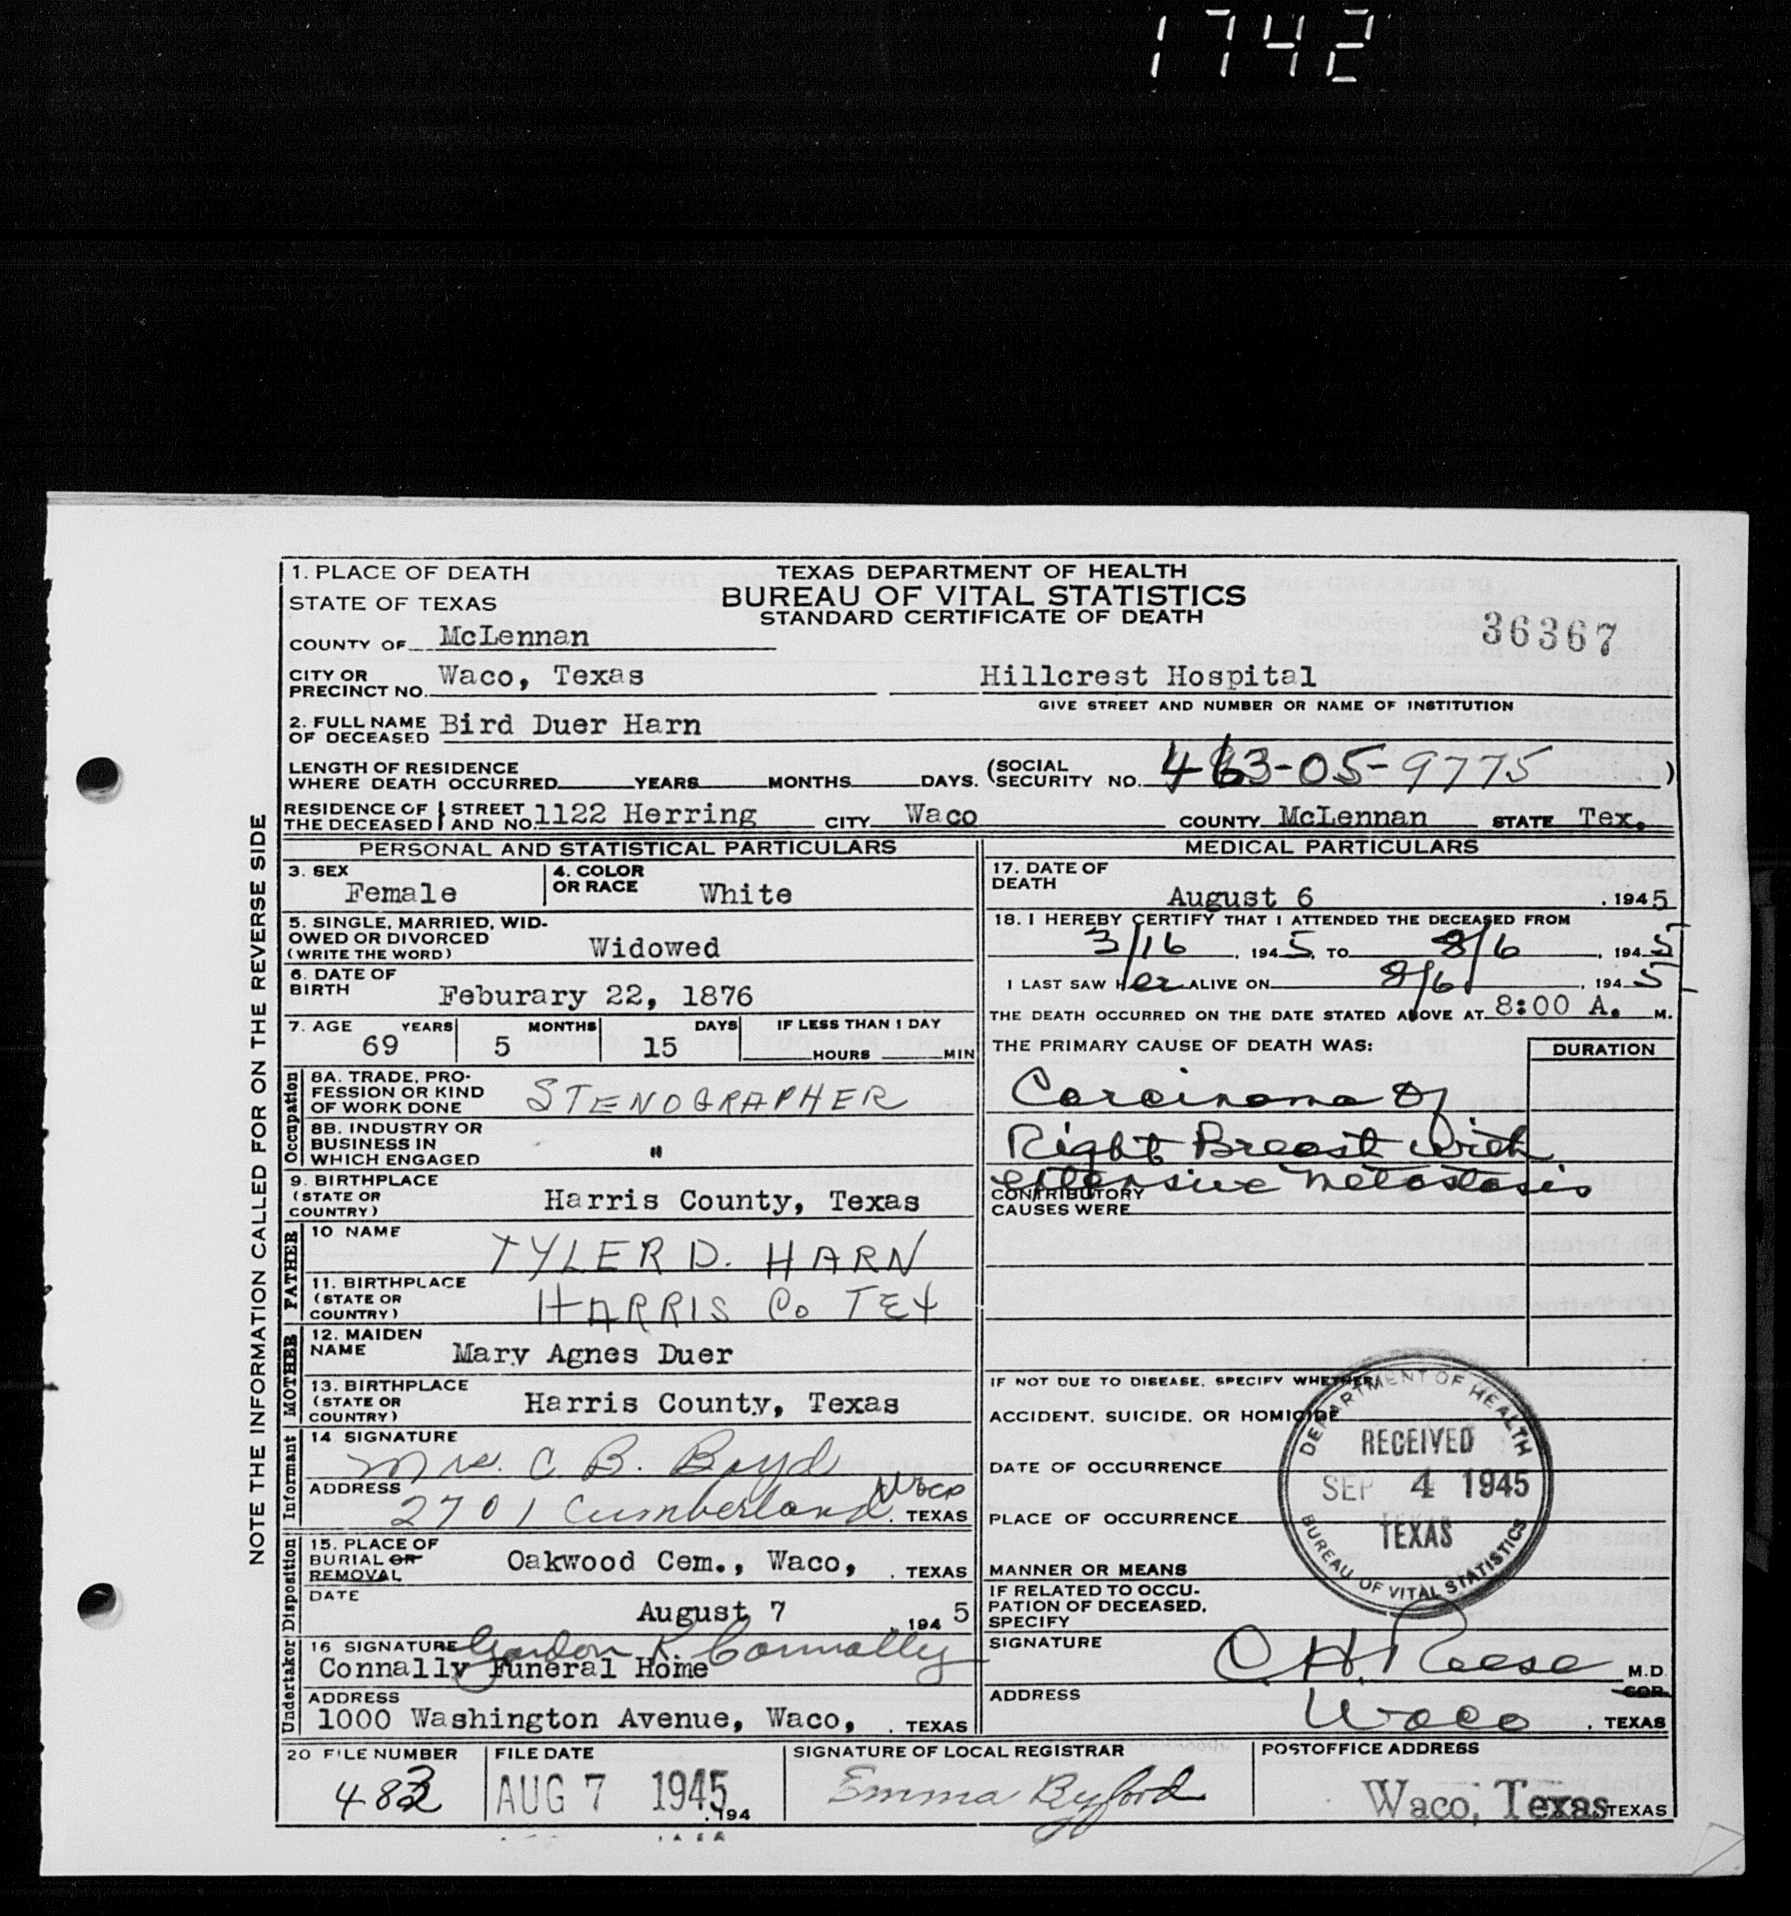 1742
1. PLACE OF DEATH
TEXAS DEPARTMENT OF HEALTH
STATE OF TEXAS
BUREAU OF VITAL STATISTICS
STANDARD CERTIFICATE OF DEATH
36367
COUNTY OF McLennan
CITY OR PRECINCT NO. Waco, Texas Hillcrest Hospital
GIVE STREET AND NUMBER OR NAME OF INSTITUTION
2. FULL NAME OF DECEASED Bird Duer Harn
LENGTH OF RESIDENCE WHERE DEATH OCCURRED YEARS MONTHS DAYS. (SOCIAL SECURITY NO. 463-05-9775 )
RESIDENCE OF THE DECEASED STREET AND NO. 1122 Herring CITY Waco COUNTY McLennan STATE Tex.
NOTE THE INFORMATION CALLED FOR ON THE REVERSE SIDE
PERSONAL AND STATISTICAL PARTICULARS
3. SEX Female 4. COLOR OR RACE White
5. SINGLE, MARRIED, WIDOWED OR DIVORCED (WRITE THE WORD) Widowed
6. DATE OF BIRTH Feburary 22, 1876
7. AGE YEARS 69 MONTHS 5 DAYS 15 IF LESS THAN 1 DAY HOURS MIN
Occupation
8A. TRADE, PROFESSION OR KIND OF WORK DONE STENOGRAPHER
8B. INDUSTRY OR BUSINESS IN WHICH ENGAGED "
9. BIRTHPLACE (STATE OR COUNTRY) Harris County, Texas
FATHER
10 NAME TYLER D. HARN
11. BIRTHPLACE (STATE OR COUNTRY) HARRIS Co TEX
MOTHER
12. MAIDEN NAME Mary Agnes Duer
13. BIRTHPLACE (STATE OR COUNTRY) Harris County, Texas
Informant
14 SIGNATURE Mrs. C. B. Boyd
ADDRESS 2701 Cumberland Waco . TEXAS
Disposition
15. PLACE OF BURIAL OR REMOVAL Oakwood Cem., Waco, . TEXAS
DATE August 7 , 194 5
Undertaker
16 SIGNATURE Gordon K. Connally
Connally Funeral Home
ADDRESS
1000 Washington Avenue, Waco, . TEXAS
MEDICAL PARTICULARS
17. DATE OF DEATH August 6 . 194 5
18. I HEREBY CERTIFY THAT I ATTENDED THE DECEASED FROM
3/16 , 194 5, TO 8/6 , 194 5
I LAST SAW H er ALIVE ON 8/6 , 194 5
THE DEATH OCCURRED ON THE DATE STATED ABOVE AT 8:00 A. M.
THE PRIMARY CAUSE OF DEATH WAS: DURATION
Carcinoma of
Right Breast with
extensive metastasis
CONTRIBUTORY CAUSES WERE
IF NOT DUE TO DISEASE, SPECIFY WHETHER,
ACCIDENT, SUICIDE, OR HOMICIDE
DATE OF OCCURRENCE
PLACE OF OCCURRENCE
MANNER OR MEANS
DEPARTMENT OF HEALTH
RECEIVED
SEP 4 1945
TEXAS
BUREAU OF VITAL STATISTICS
IF RELATED TO OCCUPATION OF DECEASED, SPECIFY
SIGNATURE C. H. Reese M.D.
COR.
ADDRESS Waco . TEXAS
20 FILE NUMBER FILE DATE SIGNATURE OF LOCAL REGISTRAR POSTOFFICE ADDRESS
AUG 7 1945 , 194 Emma Byford Waco, Texas TEXAS